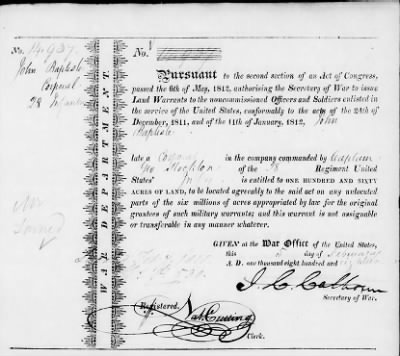 No. 14,937.
John Baptist
Corporal
28 Infantry
No.
PURSUANT to the second section of an Act of Congress,
passed the 6th of May, 1812, authorising the Secretary of War to issue
Land Warrants to the noncommissioned Officers and Soldiers enlisted in
the service of the United States, conformably to the acts of the 24th of
December, 1811, and of the 11th of January, 1812, John
Baptist
late a Corporal in the company commanded by Captain
Geo Stockton of the 28 Regiment United
States'
is entitled to ONE HUNDRED AND SIXTY
ACRES OF LAND, to be located agreeably to the said act on any unlocated
parts of the six millions of acres appropriated by law for the original
grantees of such military warrants; and this warrant is not assignable
or transferable in any manner whatever.
GIVEN at the War Office of the United States,
this day of February
A. D. one thousand eight hundred and
J. C. Calhoun
Secretary of War.
Registered.
Nat. Cutting
Clerk.
WAR DEPARTMENT.